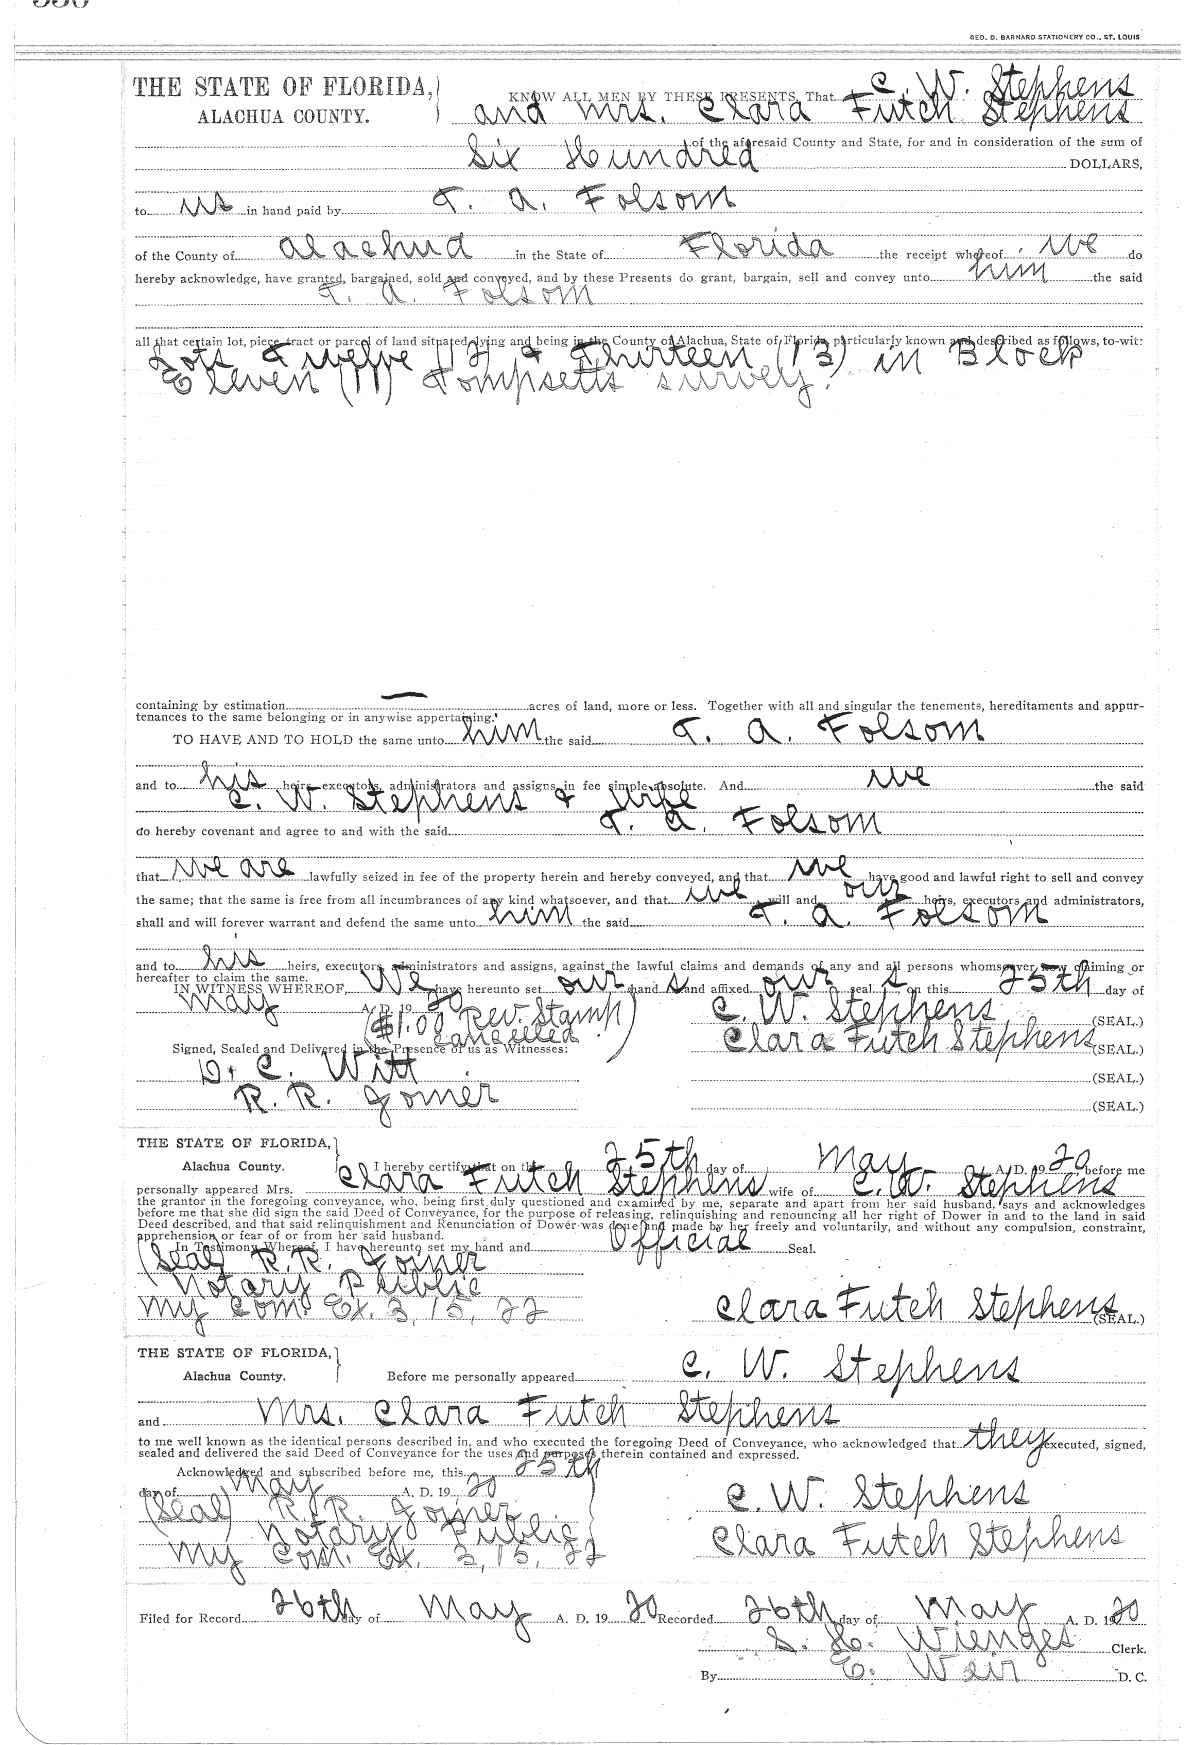 GEO. D. BARNARD STATIONERY CO., ST. LOUIS
THE STATE OF FLORIDA,
ALACHUA COUNTY.
KNOW ALL MEN BY THESE PRESENTS, That C. W. Stephens
and Mrs. Clara Futch Stephens
of the aforesaid County and State, for and in consideration of the sum of
Six Hundred DOLLARS,
to us in hand paid by T. A. Folsom
of the County of Alachua in the State of Florida the receipt whereof we do
hereby acknowledge, have granted, bargained, sold and conveyed, and by these Presents do grant, bargain, sell and convey unto him the said
T. A. Folsom
all that certain lot, piece, tract or parcel of land situated, lying and being in the County of Alachua, State of Florida, particularly known and described as follows, to-wit:
Lots Twelve (12) & Thirteen (13) in Block
Eleven (11) Tompsetts survey.
containing by estimation — acres of land, more or less. Together with all and singular the tenements, hereditaments and appur-
tenances to the same belonging or in anywise appertaining.
TO HAVE AND TO HOLD the same unto him the said T. A. Folsom
and to his heirs, executors, administrators and assigns, in fee simple absolute. And we the said
C. W. Stephens & wife
do hereby covenant and agree to and with the said T. A. Folsom
that we are lawfully seized in fee of the property herein and hereby conveyed, and that we have good and lawful right to sell and convey
the same; that the same is free from all incumbrances of any kind whatsoever, and that we will and our heirs, executors and administrators,
shall and will forever warrant and defend the same unto him the said T. A. Folsom
and to his heirs, executors, administrators and assigns, against the lawful claims and demands of any and all persons whomsoever now claiming or
hereafter to claim the same.
IN WITNESS WHEREOF, We have hereunto set our hand s and affixed our seal s, on this 25th day of
May A. D. 19 20
($1.00 Rev. Stamp
Cancelled)
C. W. Stephens (SEAL.)
Signed, Sealed and Delivered in the Presence of us as Witnesses:
Clara Futch Stephens (SEAL.)
D. C. Witt (SEAL.)
R. R. Joiner (SEAL.)
THE STATE OF FLORIDA,
Alachua County.
I hereby certify that on this 25th day of May A. D. 19 20, before me
personally appeared Mrs. Clara Futch Stephens wife of C. W. Stephens
the grantor in the foregoing conveyance, who, being first duly questioned and examined by me, separate and apart from her said husband, says and acknowledges
before me that she did sign the said Deed of Conveyance, for the purpose of releasing, relinquishing and renouncing all her right of Dower in and to the land in said
Deed described, and that said relinquishment and Renunciation of Dower was done and made by her freely and voluntarily, and without any compulsion, constraint,
apprehension or fear of or from her said husband.
In Testimony Whereof, I have hereunto set my hand and Official Seal.
(Seal) R. R. Joiner
Notary Public
My Com. Ex. 3, 15, 22
Clara Futch Stephens (SEAL.)
THE STATE OF FLORIDA,
Alachua County.
Before me personally appeared C. W. Stephens
and Mrs. Clara Futch Stephens
to me well known as the identical persons described in, and who executed the foregoing Deed of Conveyance, who acknowledged that they executed, signed,
sealed and delivered the said Deed of Conveyance for the uses and purposes therein contained and expressed.
Acknowledged and subscribed before me, this 25th
day of May A. D. 19 20
C. W. Stephens
(Seal) R. R. Joiner
Notary Public
Clara Futch Stephens
My Com. Ex. 3, 15, 22
Filed for Record 26th day of May A. D. 19 20 Recorded 26th day of May A. D. 19 20
S. H. Wienges Clerk.
By E. Weir D. C.